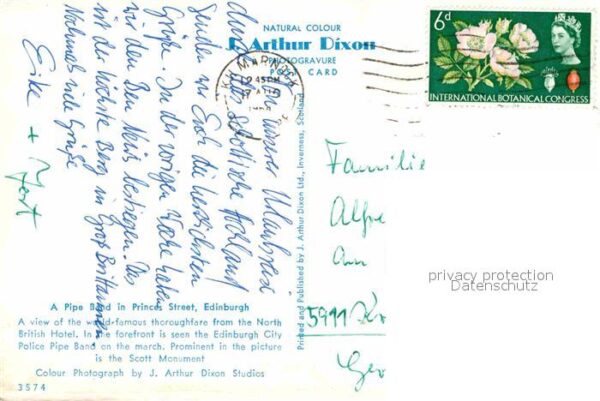 NATURAL COLOUR
J. Arthur Dixon
PHOTOGRAVURE
POST CARD
6d
INTERNATIONAL BOTANICAL CONGRESS
12 45 PM
Von unserer Urlaubsreise
durch das Schottische Hochland
senden wir Euch die herzlichsten
Grüße. In der vorigen Woche haben
wir den Ben Nevis bestiegen. Das
ist der höchste Berg in Großbritannien.
Nochmals viele Grüße
Eike + Gert
Familie
Alfre
An
5911
Ger
privacy protection
Datenschutz
Printed and Published by J. Arthur Dixon Ltd., Inverness, Scotland
A Pipe Band in Princes Street, Edinburgh
A view of the world-famous thoroughfare from the North
British Hotel. In the forefront is seen the Edinburgh City
Police Pipe Band on the march. Prominent in the picture
is the Scott Monument
Colour Photograph by J. Arthur Dixon Studios
3574